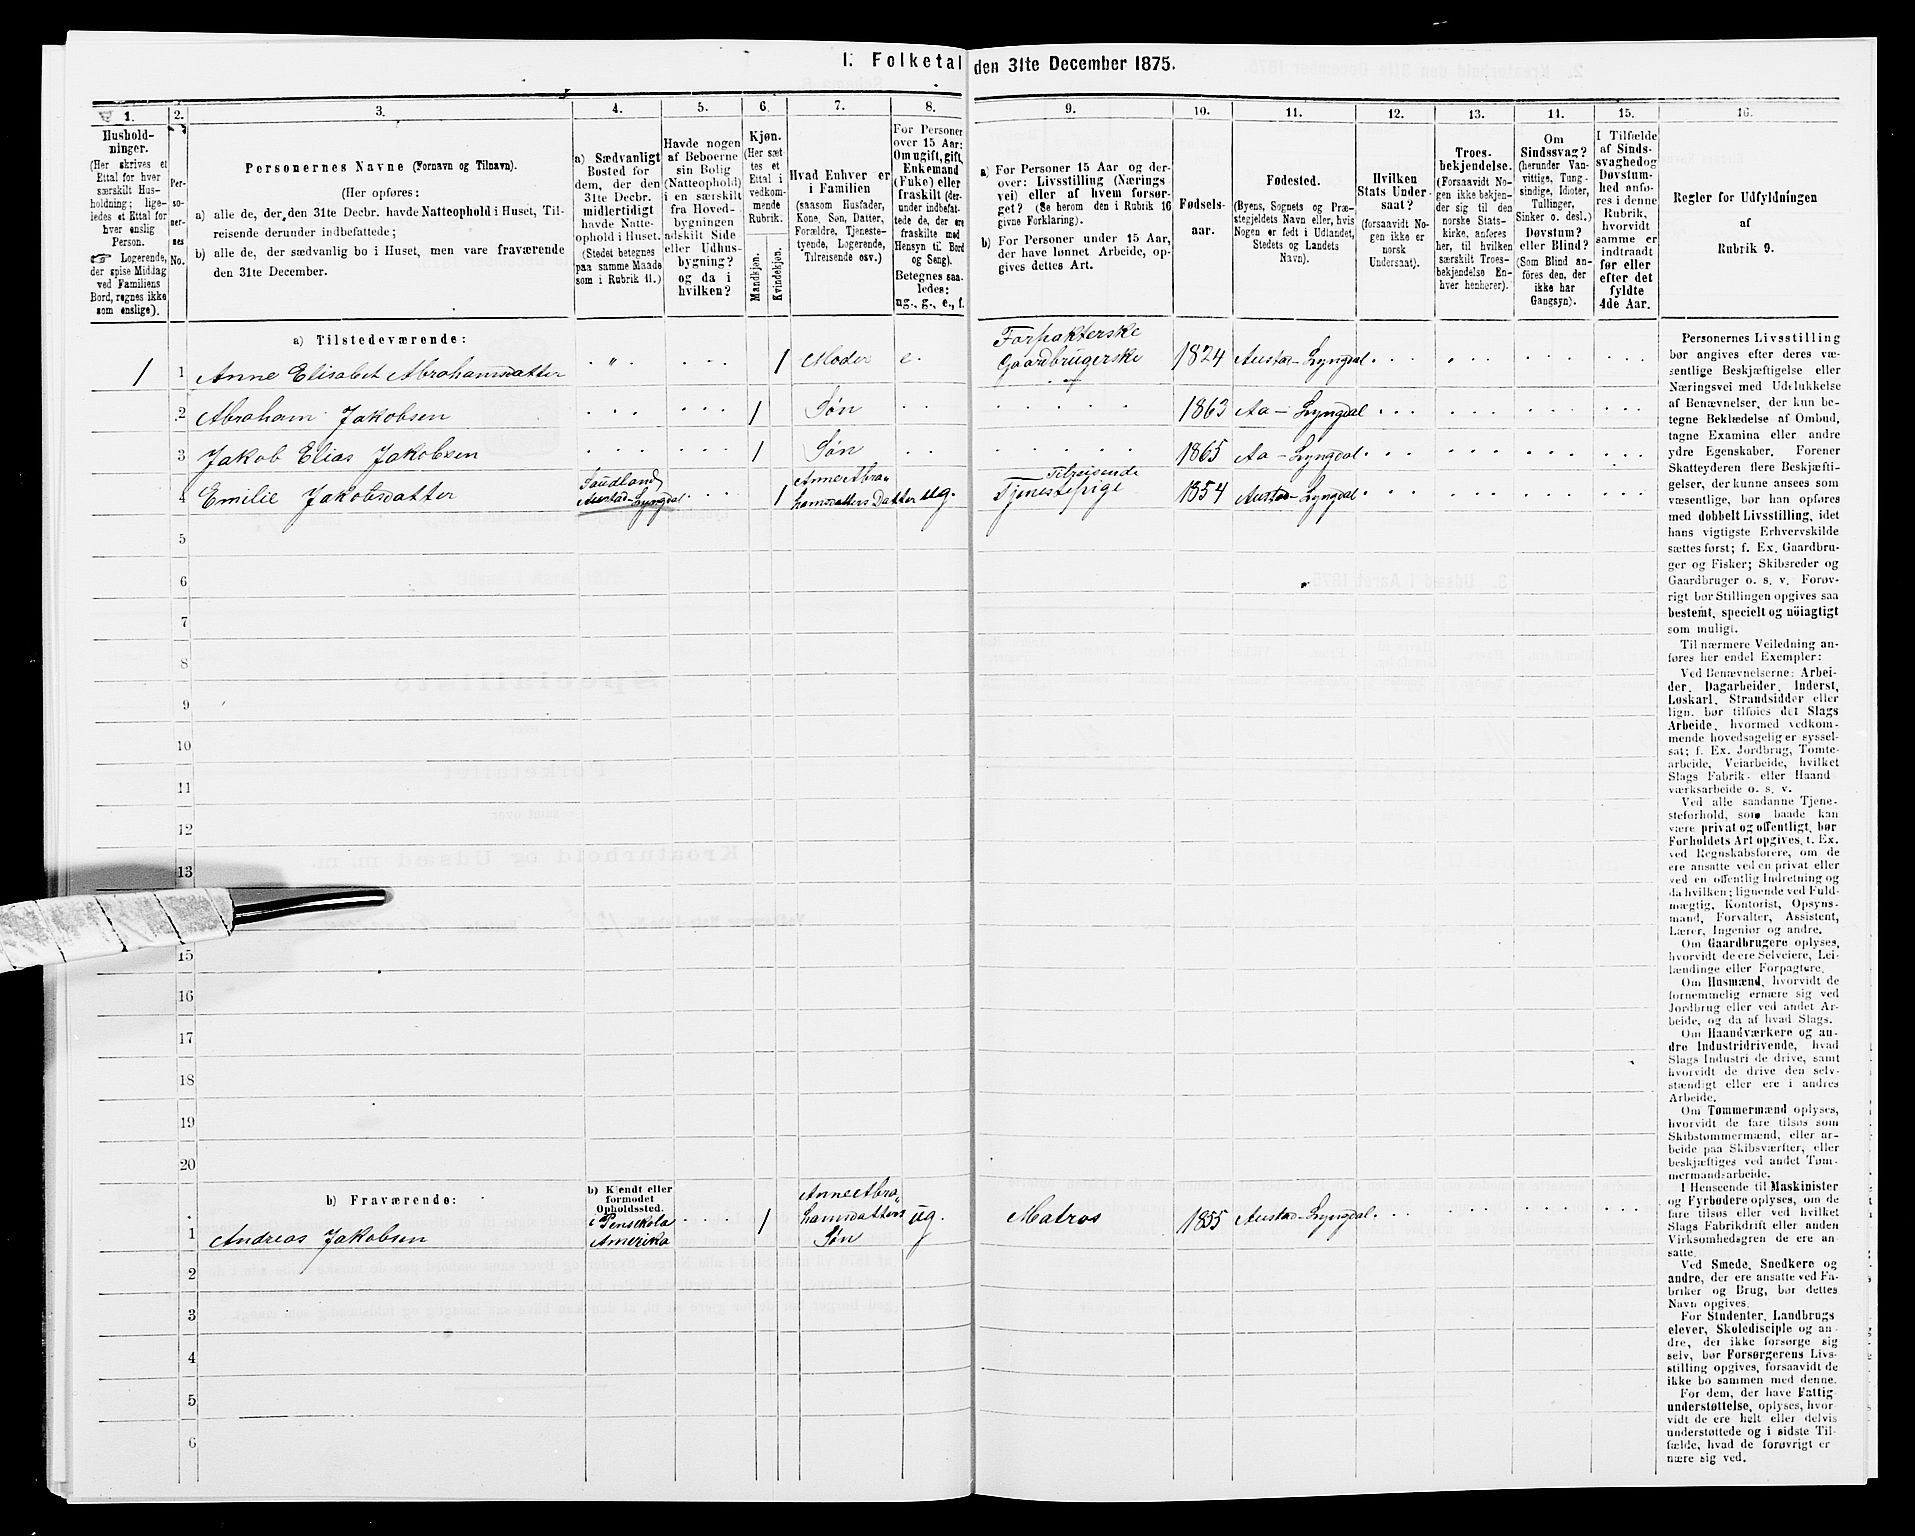 I. Folketal den 31te December 1875.
1.
Hushold-
ninger.
(Her skrives et
Ettal for hver
særskilt Hus-
holdning; lige-
ledes et Ettal for
hver enslig
Person.
☞ Logerende,
der spise Middag
ved Familiens
Bord, regnes ikke
som enslige).
2.
Per-
so-
ner-
nes
No.
3.
Personernes Navne (Fornavn og Tilnavn).
(Her opføres:
a) alle de, der den 31te Decbr. havde Natteophold i Huset, Til-
reisende derunder indbefattede;
b) alle de, der sædvanlig bo i Huset, men vare fraværende
den 31te December.
4.
a) Sædvanligt
Bosted for
dem, der den
31te Decbr.
midlertidigt
havde Natte-
ophold i Huset.
(Stedet betegnes
paa samme Maade
som i Rubrik 11.)
5.
Havde nogen
af Beboerne
sin Bolig
(Natteophold)
i en særskilt
fra Hoved-
bygningen
adskilt Side-
eller Udhus-
bygning?
og da i
hvilken?
6.
Kjøn.
(Her sæt-
tes et
Ettal i
vedkom-
mende
Rubrik.
Mandkjøn.
Kvindekjøn.
7.
Hvad Enhver er
i Familien
(saasom Husfader,
Kone, Søn, Datter,
Forældre, Tjeneste-
tyende, Logerende,
Tilreisende osv.)
8.
For Personer
over 15 Aar:
Om ugift, gift,
Enkemand
(Enke) eller
fraskilt (der-
under indbefat-
tede de, der ere
fraskilte med
Hensyn til Bord
og Seng).
Betegnes saa-
ledes:
ug., g., e., f.
9.
a) For Personer 15 Aar og der-
over: Livsstilling (Nærings-
vei) eller af hvem forsør-
get? (Se herom den i Rubrik 16
givne Forklaring).
b) For Personer under 15 Aar,
der have lønnet Arbeide, op-
gives dettes Art.
10.
Fødsels-
aar.
11.
Fødested.
(Byens, Sognets og Præ-
stegjeldets Navn eller, hvis
Nogen er født i Udlandet,
Stedets og Landets
Navn).
12.
Hvilken
Stats Under-
saat?
(forsaavidt No-
gen ikke er
norsk
Undersaat).
13.
Troes-
bekjendelse.
(Forsaavidt No-
gen ikke bekjen-
der sig til den
norske Stats-
kirke, anføres
her, til hvilken
særskilt Troes-
bekjendelse En-
hver henhører).
11.
Om
Sindssvag?
(herunder Van-
vittige, Tung-
sindige, Idioter,
Tullinger,
Sinker o. desl.)
Døvstum?
eller Blind?
(Som Blind an-
føres den, der
ikke har
Gangsyn).
15.
I Tilfælde
af Sinds-
svaghedog
Døvstum-
hed anfø-
res i denne
Rubrik,
hvorvidt
samme er
indtraadt
før eller
efter det
fyldte
4de Aar.
16.
Regler for Udfyldningen
af
Rubrik 9.
a) Tilstedeværende:
1 1 Anne Elisabet Abrahamsdatter „ 1 Moder e. Forpakterske Gaardbrugerske 1824 Austad-Lyngdal
2 Abraham Jakobsen 1 Søn 1863 Aa-Lyngdal
3 Jakob Elias Jakobsen 1 Søn 1865 Aa-Lyngdal
4 Emilie Jakobsdatter Saudland Austad-Lyngdal 1 Anne Abra-hamsdatters Datter ug. Tilreisende Tjenestepige 1854 Austad-Lyngdal
5
6
7
8
9
10
11
12
13
15
16
17
18
19
20
b) Fraværende:
b) Kjendt eller
formodet
Opholdssted.
1 Andreas Jakobsen i Pensekola Amerika 1 Anne Abra-hamsdatters Søn ug. Matros 1855 Austad-Lyngdal
2
3
4
5
6
Personernes Livsstilling
bør angives efter deres væ-
sentlige Beskjæftigelse eller
Næringsvei med Udelukkelse
af Benævnelser, der kun be-
tegne Beklædelse af Ombud,
tagne Examina eller andre
ydre Egenskaber. Forener
Skatteyderen flere Beskjæfti-
gelser, der kunne ansees som
væsentlige, bør han opføres
med dobbelt Livsstilling, idet
hans vigtigste Erhvervskilde
sættes først; f. Ex. Gaardbru-
ger og Fisker; Skibsreder og
Gaardbruger o. s. v. Forøv-
rigt bør Stillingen opgives saa
bestemt, specielt og nöiagtigt
som muligt.
Til nærmere Veiledning an-
føres her endel Exempler:
Ved Benævnelserne: Arbei-
der, Dagarbeider, Inderst,
Løskarl, Strandsidder eller
lign. bør tilføies det Slags
Arbeide, hvormed vedkom-
mende hovedsagelig er syssel-
sat; f. Ex. Jordbrug, Tomte-
arbeide, Veiarbeide, hvilket
Slags Fabrik- eller Haand-
værksarbeide o. s. v.
Ved alle saadanne Tjene-
steforhold, som baade kan
være privat og offentligt, bør
Forholdets Art opgives, t. Ex.
ved Regnskabsførere, om de
ere ansatte ved en privat eller
ved en offentlig Indretning og
da hvilken; lignende ved Fuld-
mægtig, Kontorist, Opsyns-
mand, Forvalter, Assistent,
Lærer, Ingeniør og andre.
Om Gaardbrugere oplyses,
hvorvidt de ere Selveiere, Lei-
lændinge eller Forpagtere.
Om Husmænd, hvorvidt de
fornemmelig ernære sig ved
Jordbrug eller ved andet Ar-
beide, og da af hvad Slags.
Om Haandværkere og an-
dre Industridrivende, hvad
Slags Industri de drive, samt
hvorvidt de drive den selv-
stændigt eller ere i andres
Arbeide.
Om Tømmermænd oplyses,
hvorvidt de fare tilsøs som
Skibstømmermænd, eller ar-
beide paa Skibsværfter, eller
beskjæftiges ved andet Tøm-
mermandsarbeide.
I Henseende til Maskinister
og Fyrbødere oplyses, om de
fare tilsøs eller ved hvilket
Slags Fabrikdrift eller anden
Virksomhedsgren de ere an-
satte.
Ved Smede, Snedkere og
andre, der ere ansatte ved Fa-
briker og Brug, bør dettes
Navn opgives.
For Studenter, Landbrugs-
elever, Skoledisciple og an-
dre, der ikke forsørge sig
selv, bør Forsørgerens Livs-
stilling opgives, forsaavidt de
ikke bo sammen med denne.
For dem, der have Fattig-
understøttelse, oplyses, hvor-
vidt de ere helt eller delvis
understøttede og i sidste Til-
fælde, hvad de forøvrigt er-
nære sig ved.